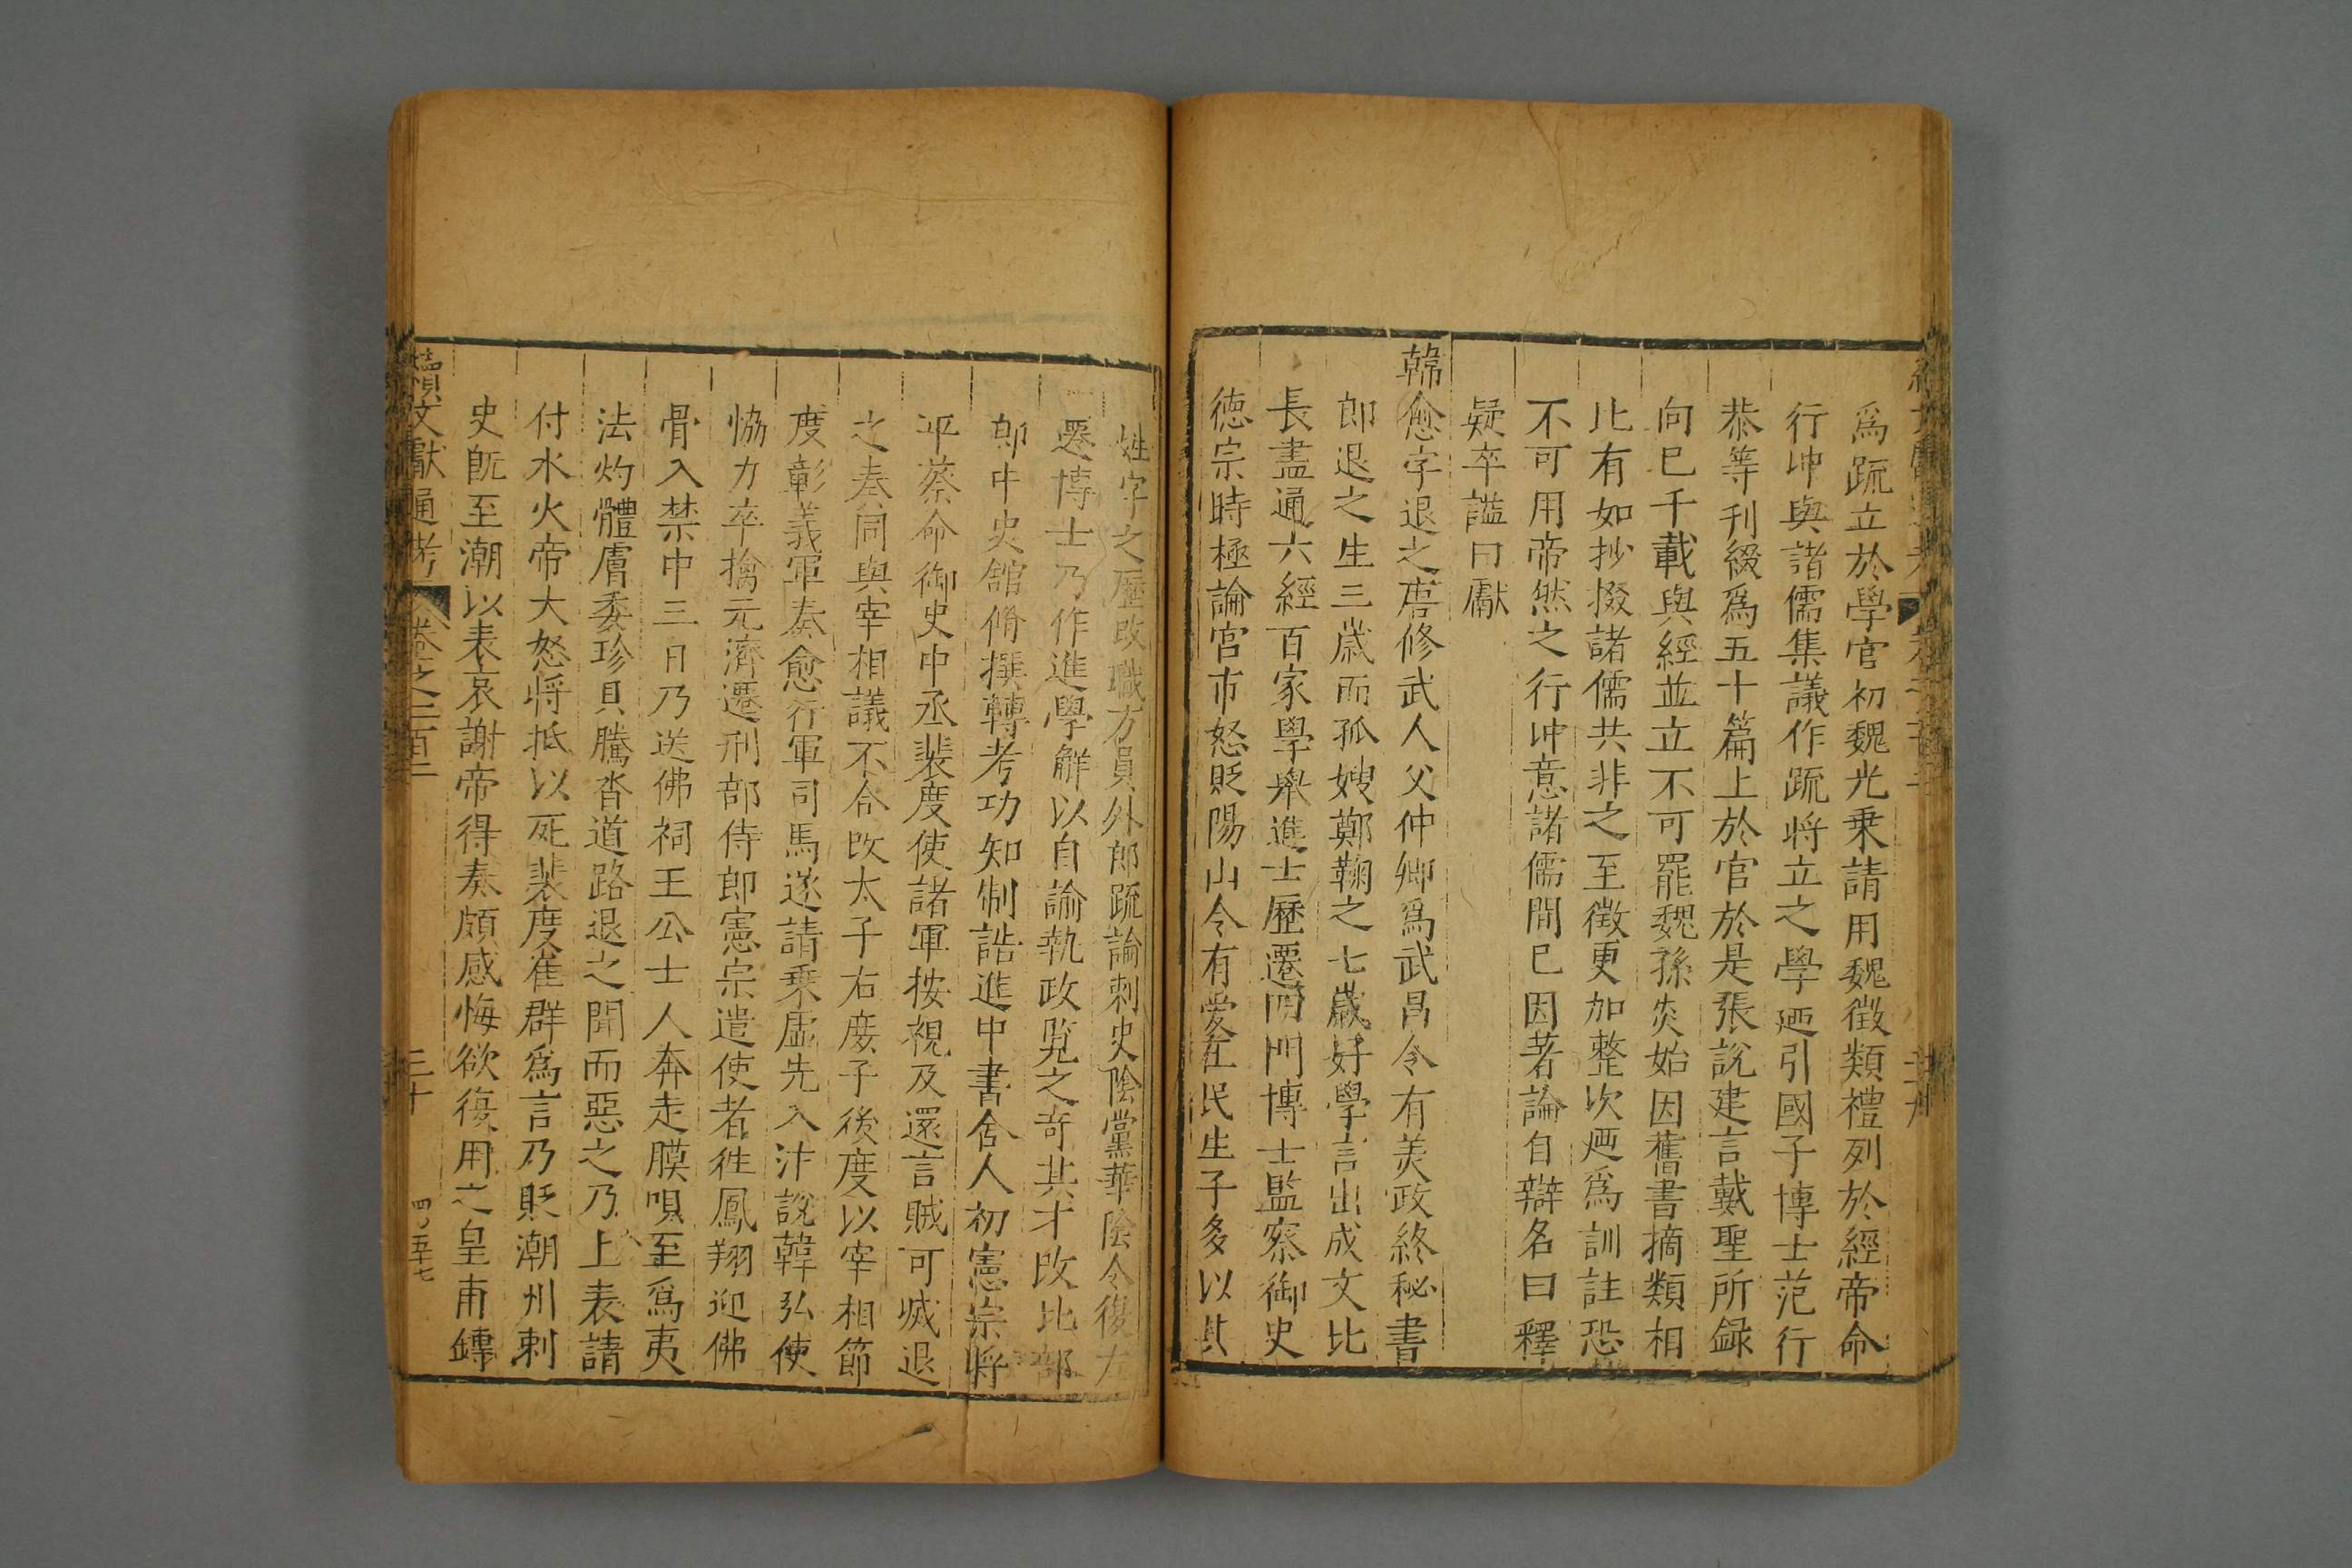 爲疏立於學官初魏光乗請用魏徵類禮列於經帝命
行冲與諸儒集議作疏將立之學廼引國子博士范行
恭等刋綴爲五十篇上於官於是張說建言戴聖所録
向巳千載與經並立不可罷魏孫炎始因舊書摘類相
比有如抄掇諸儒共非之至徵更加整次廼爲訓註恐
不可用帝然之行冲意諸儒間巳因著論自辯名曰釋
疑卒謚曰獻
韓愈字退之唐修武人父仲卿爲武昌令有美政終秘書
郎退之生三歲而孤嫂鄭鞠之七歲好學言出成文比
長盡通六經百家學舉進士歷遷四門博士監察御史
徳宗時極論宮市怒貶陽山令有愛在民生子多以其
姓字之歷改職方員外郎疏論刺史陰黨華陰令復左
遷博士乃作進學解以自諭執政覧之竒其才改比部
郎中史舘脩撰轉考功知制誥進中書舍人初憲宗將
平蔡命御史中丞裴度使諸軍按視及還言賊可滅退
之奏同與宰相議不合改太子右庶子後度以宰相節
度彰義軍奏愈行軍司馬遂請乗虛先入汴說韓弘使
恊力卒擒元濟遷刑部侍郎憲宗遣使者徃鳳翔迎佛
骨入禁中三日乃送佛祠王公士人奔走膜唄至爲夷
法灼體膚委珍貝騰沓道路退之聞而惡之乃上表請
付水火帝大怒將抵以死裴度崔群爲言乃貶潮州刺
史旣至潮以表哀謝帝得奏頗感悔欲復用之皇甫鏄
續文獻通考 卷之二百二 三十 四ノ五十七